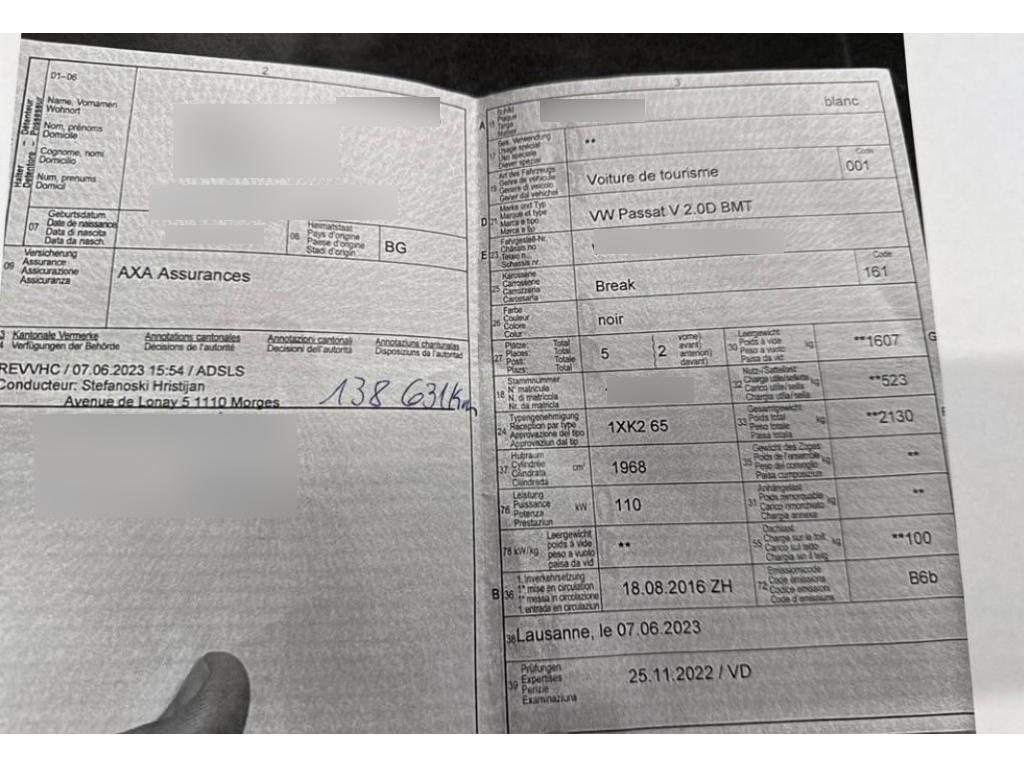 2
01-06
Name, Vornamen
Wohnort
Nom, prénoms
Domicile
Cognome, nomi
Domicilio
Num, prenums
Domicil
Halter Détenteur
Detentore Possessur
07 Geburtsdatum
Date de naissance
Data di nascita
Data da nasch.
08 Heimatstaat
Pays d'origine
Paese d'origine
Stadi d'origin
BG
09 Versicherung
Assurance
Assicurazione
Assicuranza
AXA Assurances
Kantonale Vermerke Annotations cantonales Annotazioni cantonali Annotaziuns chantunalas
Verfügungen der Behörde Décisions de l'autorité Decisioni dell'autorità Disposiziuns da l'autoritad
REVVHC / 07.06.2023 15:54 / ADSLS
Conducteur: Stefanoski Hristijan
Avenue de Lonay 5 1110 Morges
138 631 Km
3
A Schild
Plaque
Targa
blanc
17 Bes. Verwendung
Usage spécial
Uso speciale
Diever spezial
**
19 Art des Fahrzeugs
Genre de véhicule
Genere di veicolo
Gener dal vehichel
Voiture de tourisme
Code
001
D 21 Marke und Typ
Marque et type
Marca e tipo
Marca e tip
VW Passat V 2.0D BMT
E 23 Fahrgestell-Nr.
Châssis no
Telaio n.
Schassis nr.
25 Karosserie
Carrosserie
Carrozzeria
Carossaria
Break
Code
161
26 Farbe
Couleur
Colore
Colur
noir
27 Plätze: Total
Places: Total
Posti: Totale
Plazs: Total
5
2
vorne)
avant)
anteriori)
davant)
30 Leergewicht
Poids à vide
Peso a vuoto
Paisa da vid
kg
**1607
G
18 Stammnummer
N° matricule
N. di matricola
Nr. da matricla
32 Nutz-/Sattellast
Charge utile/sellette
Carico utile/sella
Chargia utila/sella
kg
**523
24 Typengenehmigung
Réception par type
Approvazione del tipo
Approvaziun dal tip
1XK2 65
33 Gesamtgewicht
Poids total
Peso totale
Paisa totala
kg
**2130
37 Hubraum
Cylindrée
Cilindrata
Cilindrada
cm³
1968
35 Gewicht des Zuges
Poids de l'ensemble
Peso del convoglio
Paisa cumposiziun
kg
**
76 Leistung
Puissance
Potenza
Prestaziun
kW
110
31 Anhängelast
Poids remorquable
Carico rimorchiato
Chargia annexa
kg
**
78 kW/kg
Leergewicht
poids à vide
peso a vuoto
paisa da vid
**
55 Dachlast
Charge sur le toit
Carico sul tetto
Chargia sin il tetg
kg
**100
B 36 1. Inverkehrsetzung
1re mise en circulation
1a messa in circolazione
1. entrada en circulaziun
18.08.2016 ZH
72 Emissionscode
Code émissions
Codice emissioni
Code d'emissiuns
B6b
38 Lausanne, le 07.06.2023
39 Prüfungen
Expertises
Perizie
Examinaziuns
25.11.2022 / VD